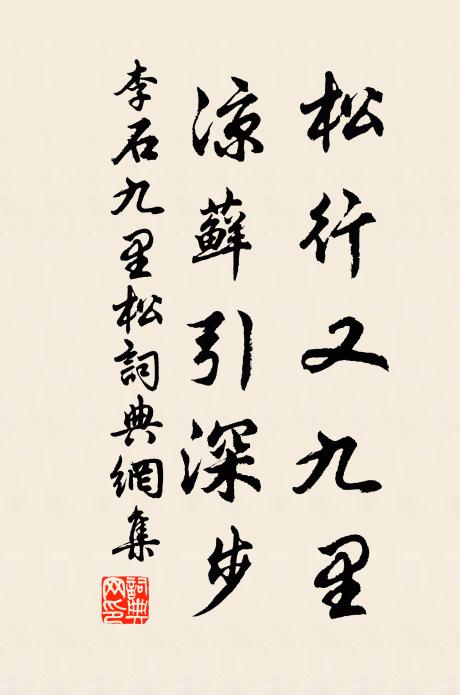 松行又九里
凉蘚引深步
李石九里松詞典網集
詞典網印